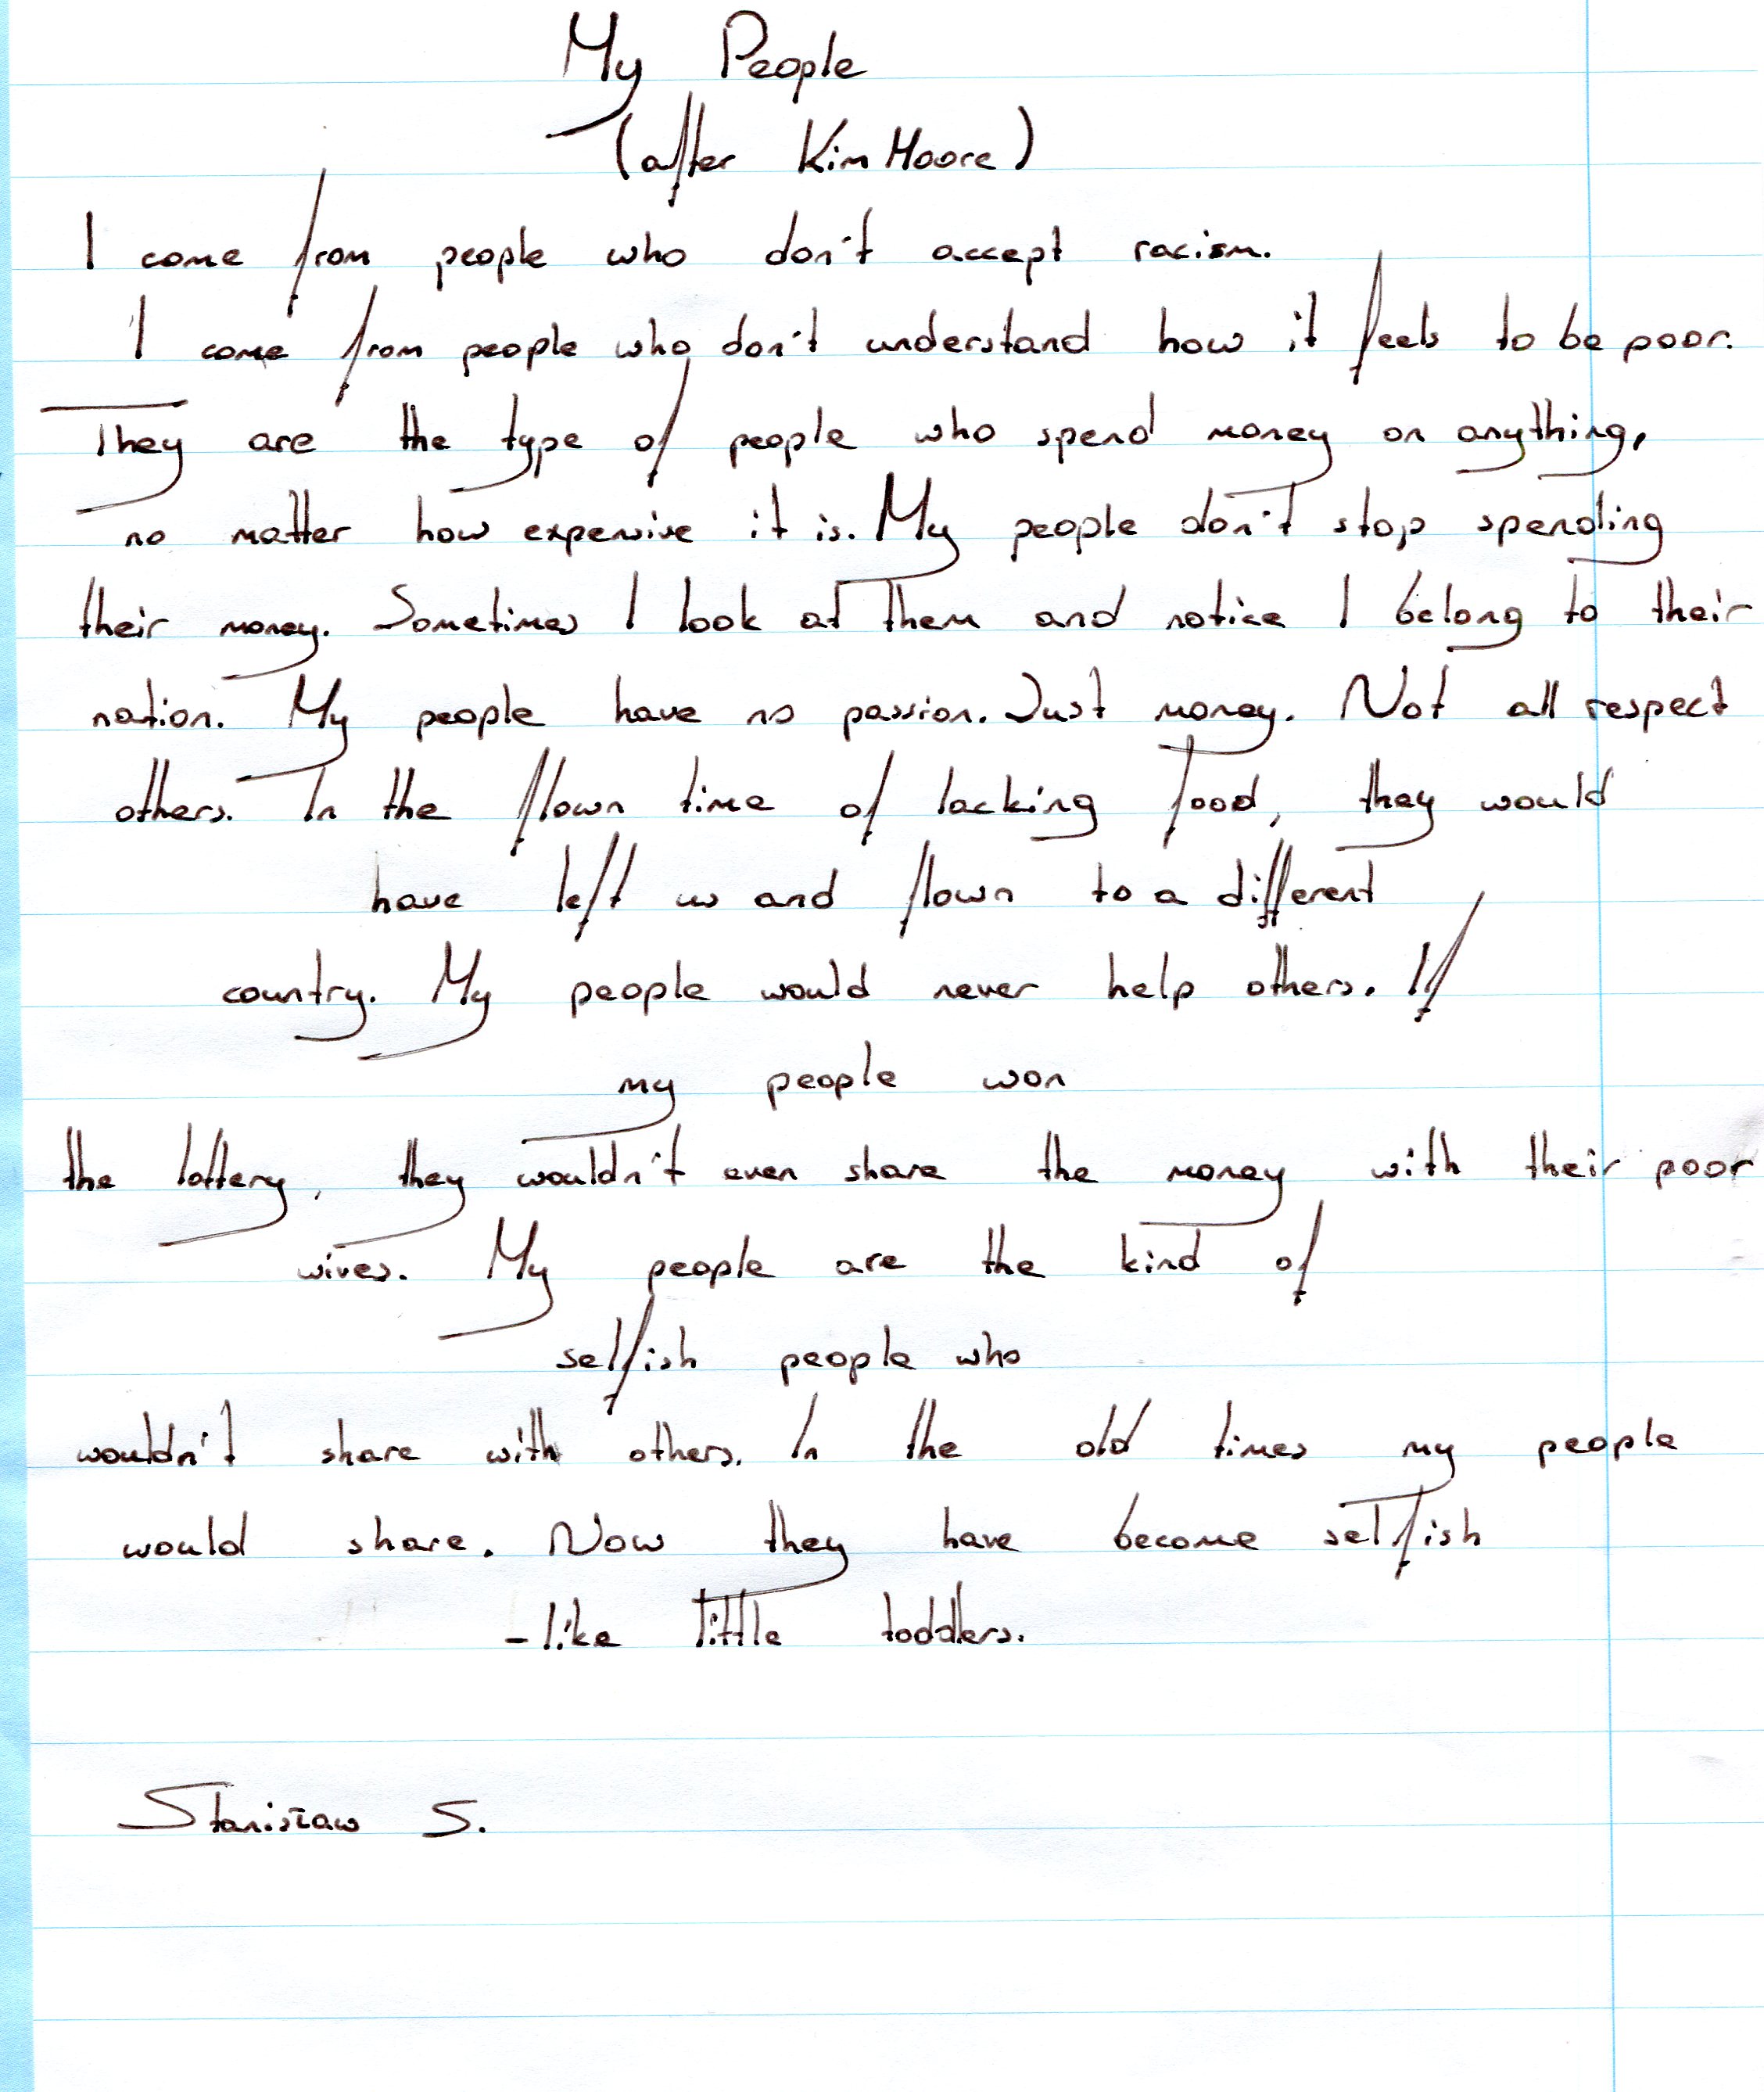 My People
(after Kim Moore)
I come from people who don't accept racism.
I come from people who don't understand how it feels to be poor.
They are the type of people who spend money on anything,
no matter how expensive it is. My people don't stop spending
their money. Sometimes I look at them and notice I belong to their
nation. My people have no passion. Just money. Not all respect
others. In the flown time of lacking food, they would
have left us and flown to a different
country. My people would never help others. If
my people won
the lottery, they wouldn't even share the money with their poor
wives. My people are the kind of
selfish people who
wouldn't share with others. In the old times my people
would share. Now they have become selfish
- like little toddlers.
Stanisław S.